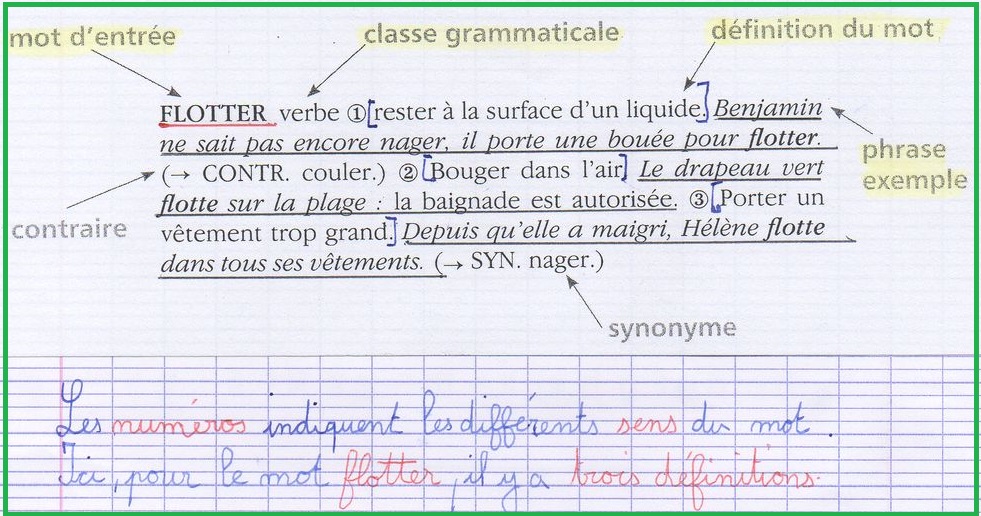 mot d'entrée
classe grammaticale
définition du mot
FLOTTER verbe ① rester à la surface d'un liquide. Benjamin
ne sait pas encore nager, il porte une bouée pour flotter.
(→ CONTR. couler.) ② Bouger dans l'air. Le drapeau vert
flotte sur la plage : la baignade est autorisée. ③ Porter un
vêtement trop grand. Depuis qu'elle a maigri, Hélène flotte
dans tous ses vêtements. (→ SYN. nager.)
phrase
exemple
contraire
synonyme
Les numéros indiquent les différents sens du mot.
Ici, pour le mot flotter, il y a trois définitions.